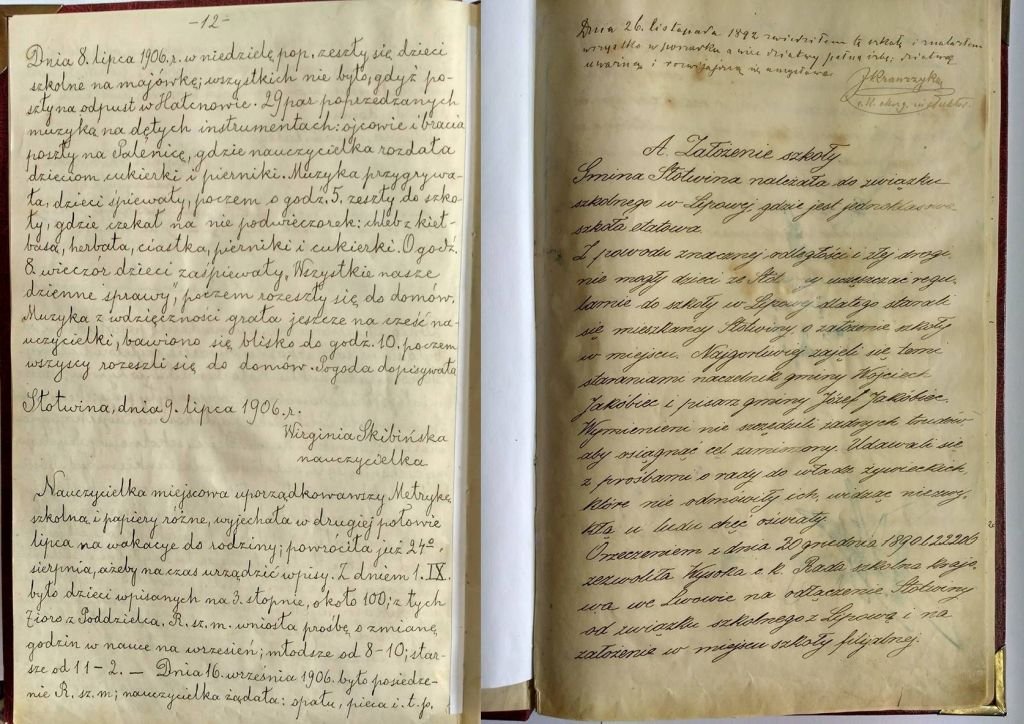 -12-
Dnia 8. lipca 1906.r. w niedzielę pop. zeszły się dzieci
szkolne na majówkę; wszystkich nie było, gdyż po-
szły na odpust w Hałcnowie. 29 par poprzedzanych
muzyką na dętych instrumentach: ojcowie i bracia
poszły na Palenicę, gdzie nauczycielka rozdała
dzieciom cukierki i pierniki. Muzyka przygrywa-
ła, dzieci śpiewały, poczem o godz. 5. zeszły do szko-
ły, gdzie czekał na nie podwieczorek: chleb z kieł-
basą, herbata, ciastka, pierniki i cukierki. O godz.
8. wieczór dzieci zaśpiewały „Wszystkie nasze
dzienne sprawy", poczem rozeszły się do domów.
Muzyka z wdzięczności grała jeszcze na cześć na-
uczycielki, bawiono się blisko do godz. 10. poczem
wszyscy rozeszli się do domów. Pogoda dopisywała
Słotwina, dnia 9. lipca 1906.r.
Wirginia Skibińska
nauczycielka
Nauczycielka miejscowa uporządkowawszy Metrykę
szkolną i papiery różne, wyjechała w drugiej połowie
lipca na wakacye do rodziny; powróciła już 24º.
sierpnia, ażeby na czas urządzić wpisy. Z dniem 1. IX.
było dzieci wpisanych na 3. stopnie, około 100; z tych
7ioro z Poddzielca. R. sz. m. wniosła prośbę o zmianę
godzin w nauce na wrzesień; młodsze od 8-10; star-
sze od 11-2. — Dnia 16. września 1906. było posiedze-
nie R. sz. m; nauczycielka żądała: opału, pieca i. t. p,
Dnia 26. listopada 1892 zwiedziłem tę szkołę i znalazłem
wszystko w porządku a więc dziatwy pełną izbę; dziatwę
uważną i rozwijającą się umysłowo
JKrawczyk
A. Założenie szkoły.
Gmina Słotwina należała do związku
szkolnego w Lipowej, gdzie jest jednoklasowa
szkoła etatowa.
Z powodu znacznej odległości i złej drogi,
nie mogły dzieci ze Słot y uczęszczać regu-
larnie do szkoły w Lipowy dlatego starali
się mieszkańcy Słotwiny o założenie szkoły
w miejscu. Najgorliwiej zajęli się temi
staraniami naczelnik gminy Wojciech
Jakóbiec i pisarz gminy Józef Jakóbiec.
Wymienieni nie szczędzili żadnych trudów
aby osiągnąć cel zamierzony. Udawali się
z prośbami o rady do władz żywieckich,
które nie odmówiły ich, widząc niezwy,
kłą u ludu chęć oświaty.
Orzeczeniem z dnia 20 grudnia 1890 l. 22206
zezwoliła Wysoka c. k. Rada szkolna krajo,
wa we Lwowie na odłączenie Słotwiny
od związku szkolnego z Lipową i na
założenie w miejscu szkoły filjalnej.